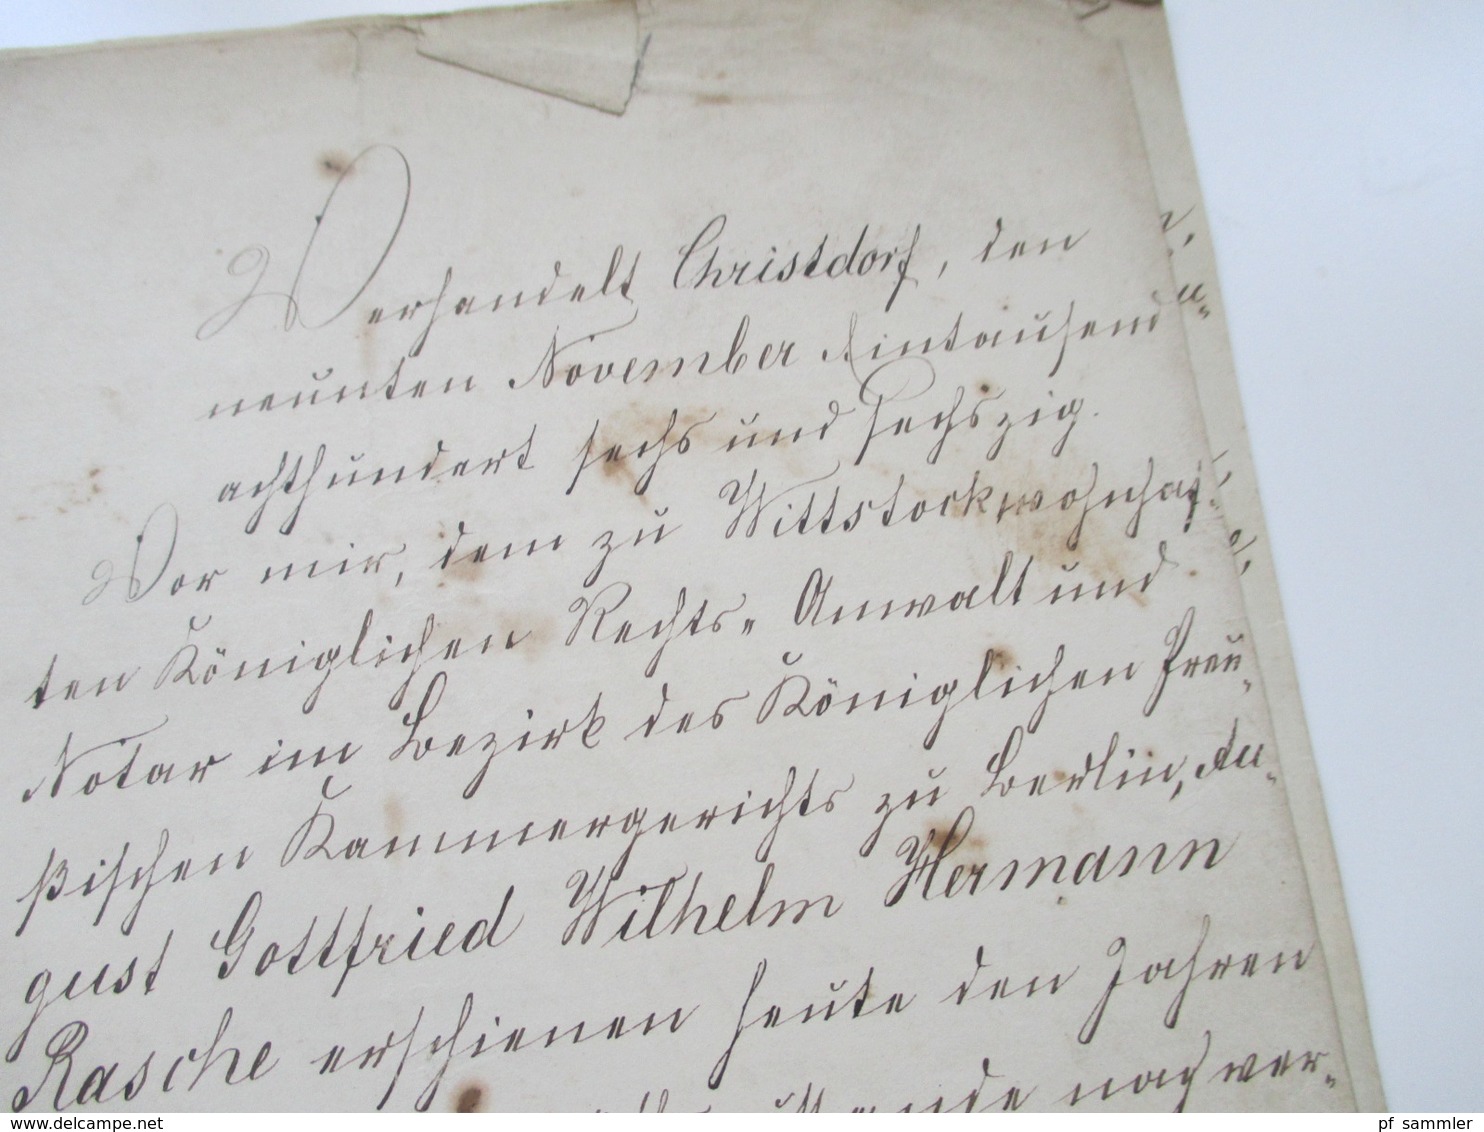 Verhandelt Christdorf, den
neunten November Eintausend
achthundert sechs und sechszig.
Vor mir, dem zu Wittstock wohnhaf-
ten Königlichen Rechts- Anwalt und
Notar im Bezirk des Königlichen Preu-
ßischen Kammergerichts zu Berlin, Au-
gust Gottfried Wilhelm Hermann
Rasche erschienen heute den Jahren
nach ver-
pf sammler
www.delcampe.net